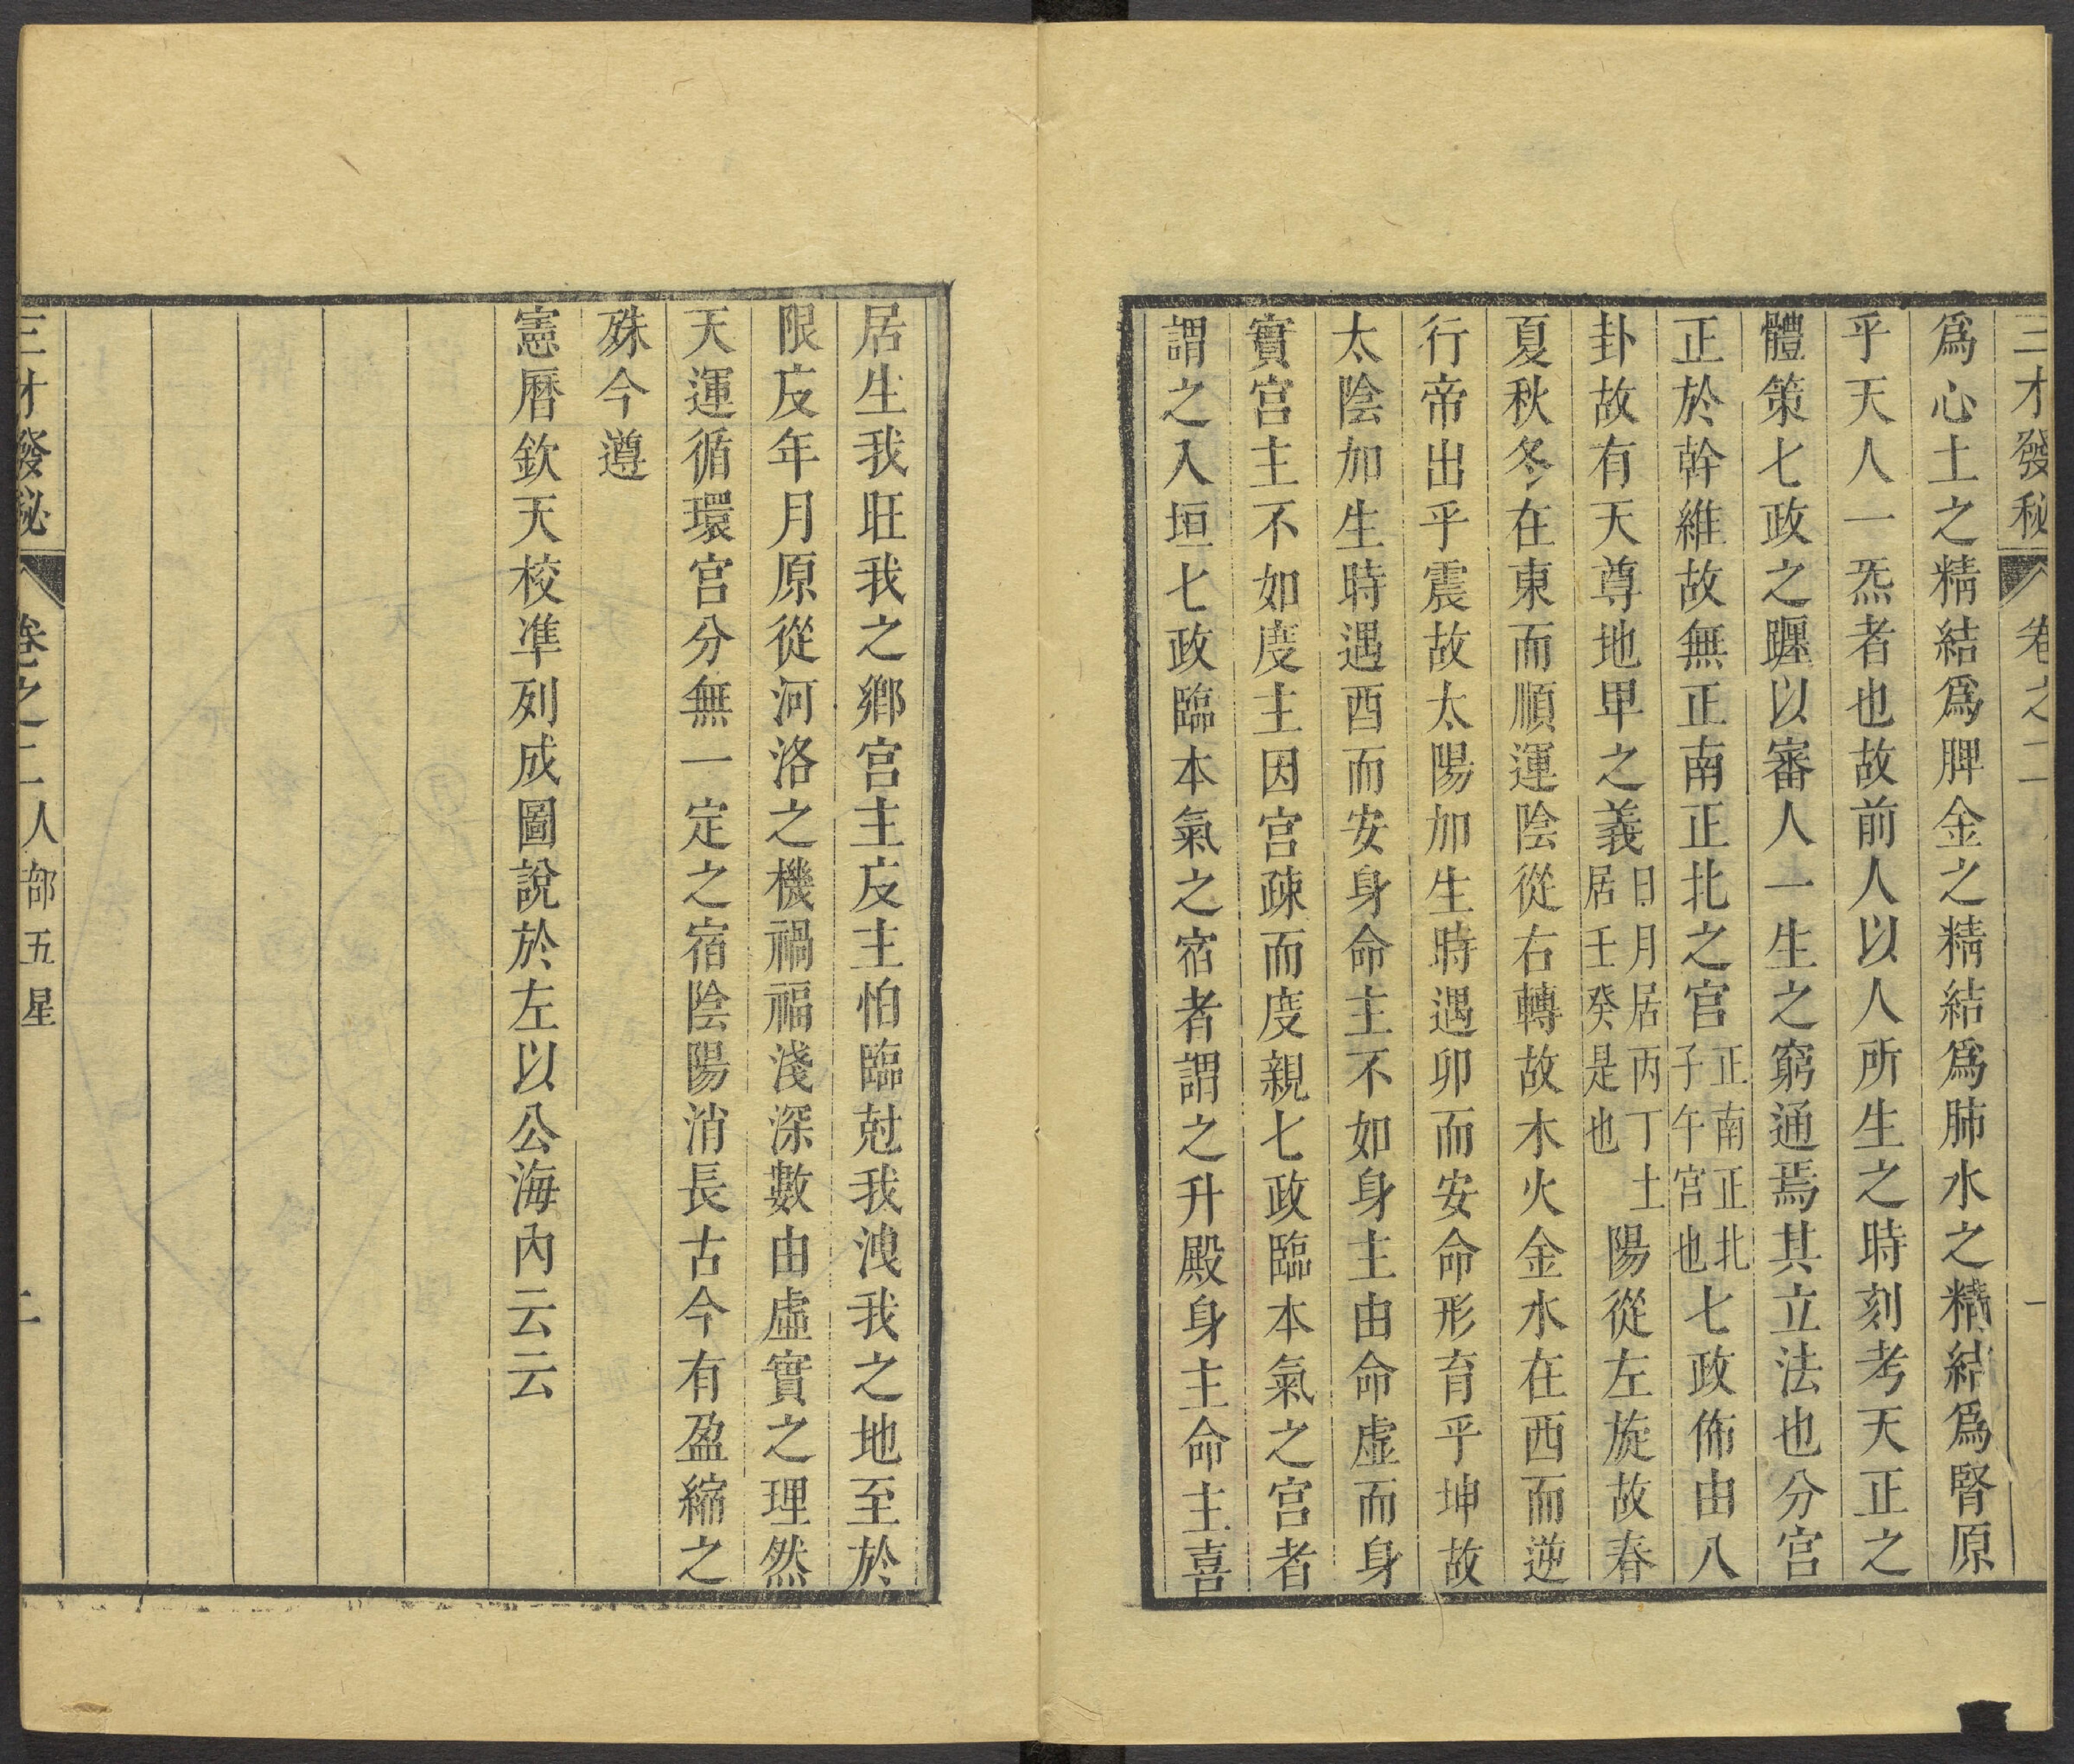 三才發秘 卷之二 一
爲心土之精結爲脾金之精結爲肺水之精結爲腎原
乎天人一炁者也故前人以人所生之時刻考天正之
體策七政之躔以審人一生之窮通焉其立法也分宮
正於幹維故無正南正北之宮正南正北子午宮也七政佈由八
卦故有天尊地甲之義日月居丙丁土居壬癸是也陽從左旋故春
夏秋冬在東而順運陰從右轉故木火金水在西而逆
行帝出乎震故太陽加生時遇卯而安命形育乎坤故
太陰加生時遇酉而安身命主不如身主由命虛而身
實宮主不如度主因宮疎而度親七政臨本氣之宮者
謂之入垣七政臨本氣之宿者謂之升殿身主命主喜
居生我旺我之鄉宮主度主怕臨尅我洩我之地至於
限度年月原從河洛之機禍福淺深數由虛實之理然
天運循環宮分無一定之宿陰陽消長古今有盈縮之
殊今遵
憲曆欽天校準列成圖說於左以公海內云云
三才發秘 卷之二 人部五星 二